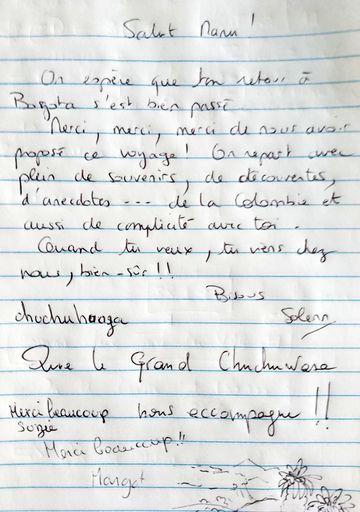 Salut Manu !
On espère que ton retour à
Bogota s'est bien passé.
Merci, merci, merci de nous avoir
proposé ce voyage ! On repart avec
plein de souvenirs, de découvertes,
d'anecdotes --- de la Colombie et
aussi de complicité avec toi.
Quand tu veux, tu viens chez
nous, bien-sûr !!
Bisous
chuchuhuaga Solenn
Que le Grand Chuchuwasa
Merci beaucoup nous accompagne !!
Merci beaucoup !!
Margot